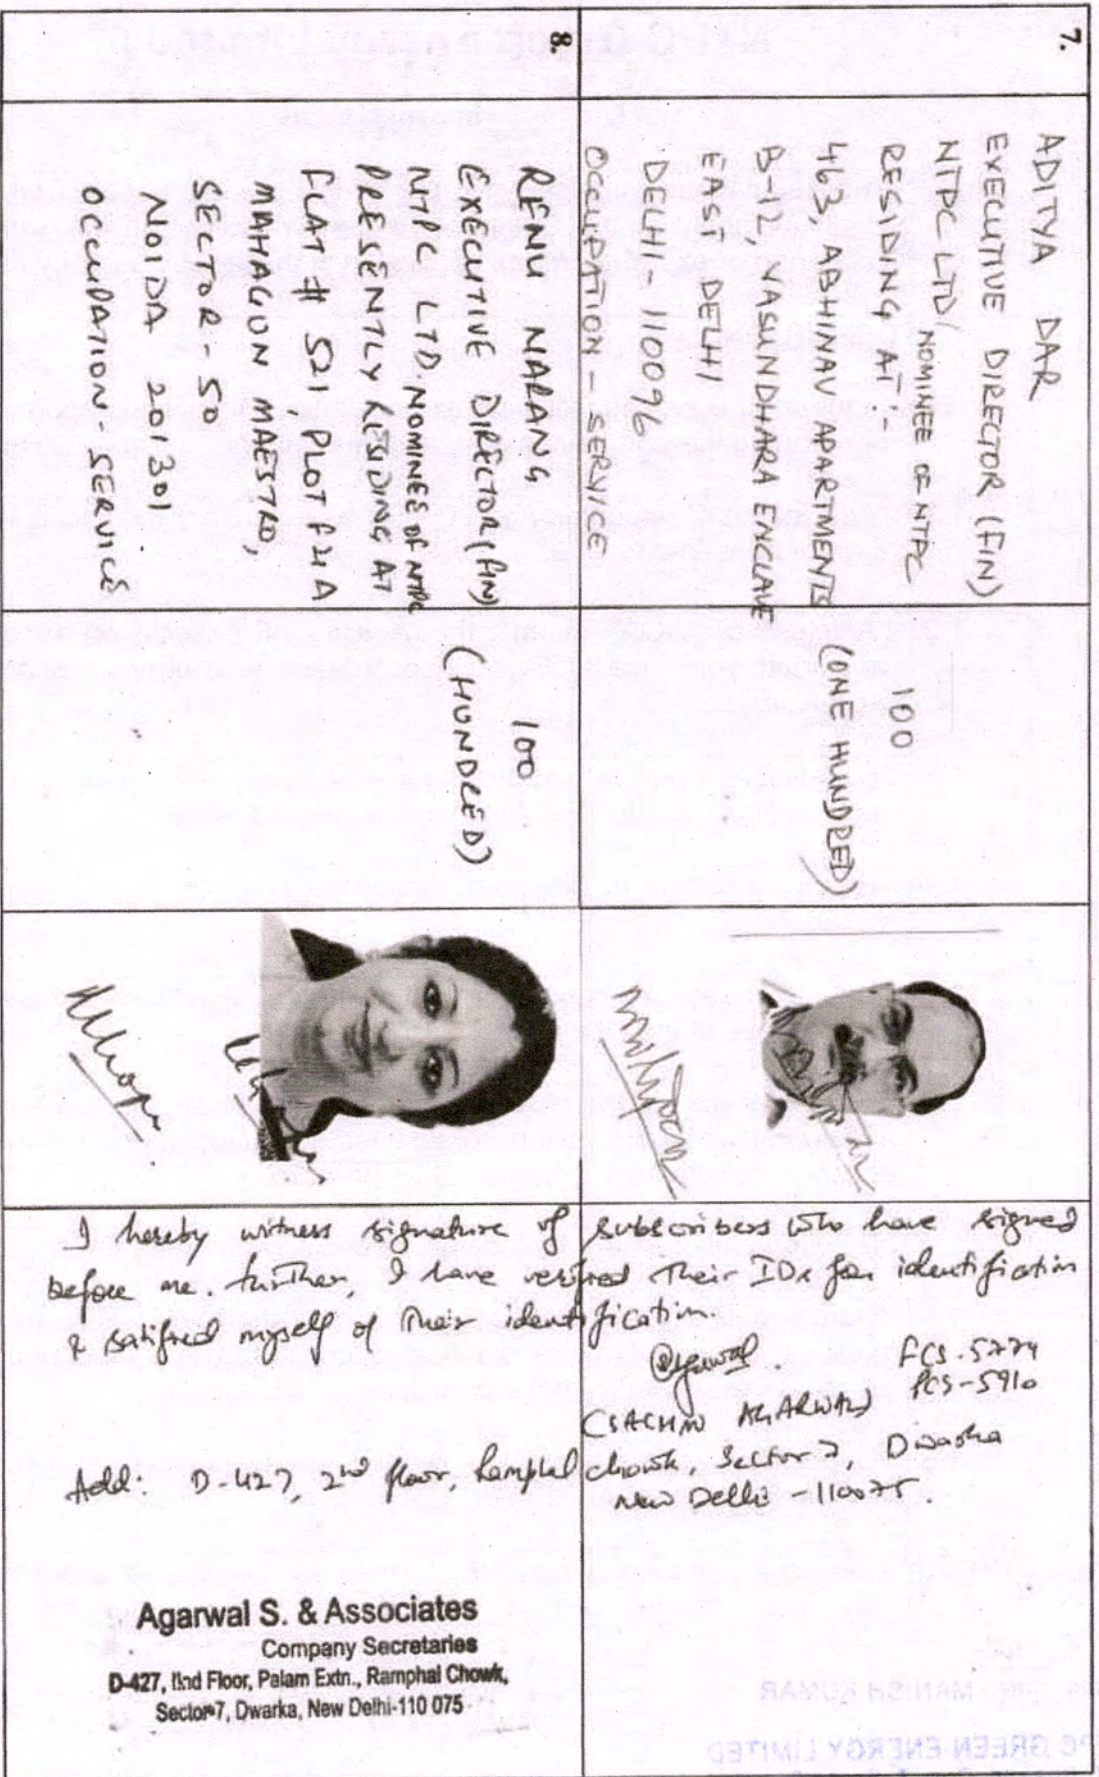 7.
ADITYA DAR
EXECUTIVE DIRECTOR (FIN)
NTPC LTD/ NOMINEE OF NTPC
RESIDING AT -
463, ABHINAV APARTMENTS
B-12, VASUNDHARA ENCLAVE
EAST DELHI
DELHI - 110096
OCCUPATION - SERVICE
100
(ONE HUNDRED)
8.
RENU NARANG
EXECUTIVE DIRECTOR (FIN)
NTPC LTD. NOMINEE OF NTPC
PRESENTLY RESIDING AT
FLAT # 521 PLOT F21A
MAHAGUN MAESTRO,
SECTOR - 50
NOIDA 201301
OCCUPATION - SERVICE
100
(HUNDRED)
I hereby witness signature of subscribers who have signed
before me. further, I have verified their IDs for identifiction
& satisfied myself of their identification.
Agarwal. FCS-5774
PCS-5910
(SACHIN AGARWAL)
Add: D-427, 2nd floor, Ramphal chowk, Sector 7, Dwarka
New Delhi - 110075.
Agarwal S. & Associates
Company Secretaries
D-427, IInd Floor, Palam Extn., Ramphal Chowk,
Sector-7, Dwarka, New Delhi-110 075
MANISH KUMAR
GREEN ENERGY LIMITED